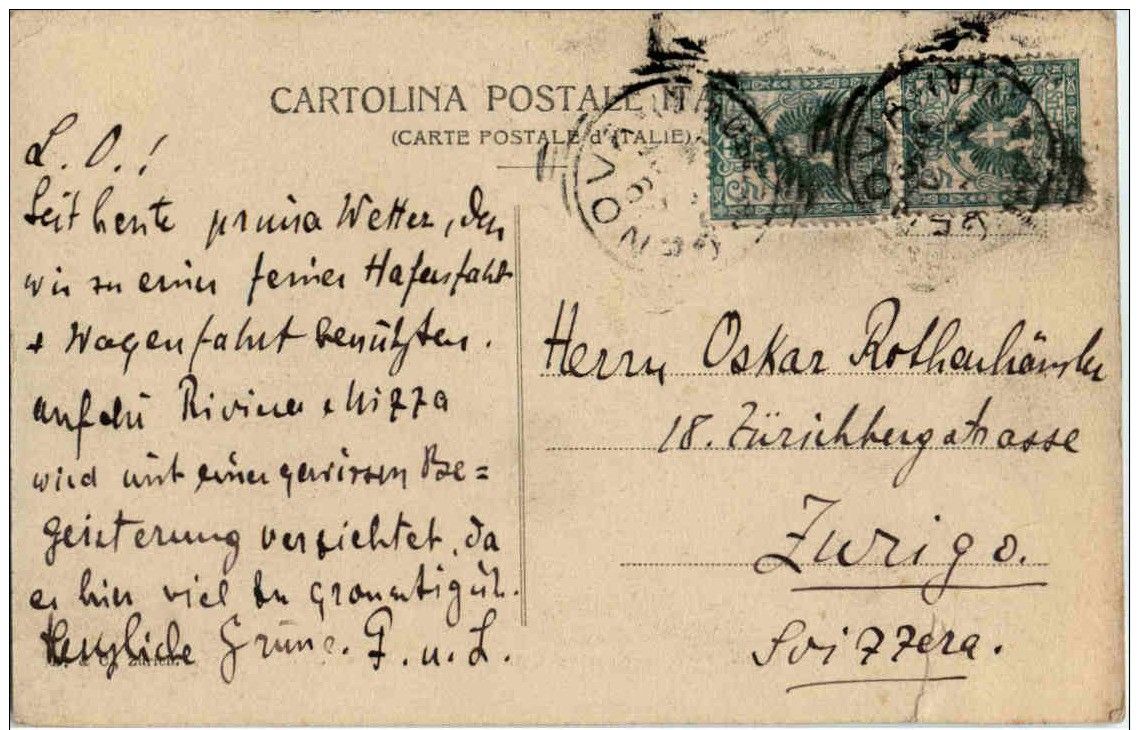 CARTOLINA POSTALE ITA
(CARTE POSTALE d'ITALIE)
GENOVA
L. O.!
Seit heute prima Wetter, den
wir zu einer feinen Hafenfahrt
+ Wagenfahrt benützten.
Auf die Riviera & Nizza
wird mit einer gewissen Be=
geisterung verzichtet, da
es hier viel zu
Herzliche Grüsse. F. u. L.
Herrn Oskar Rothenhäusler
18. Zürichbergstrasse
Zurigo.
Svizzera.